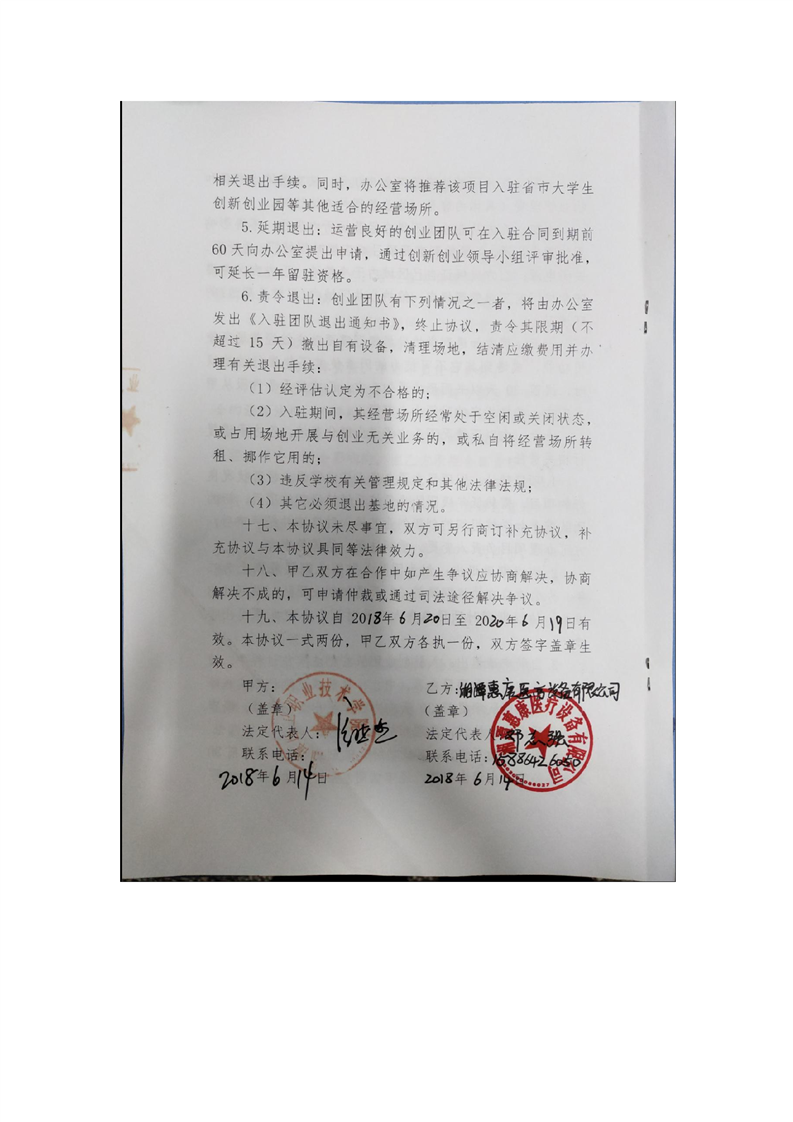 相关退出手续。同时，办公室将推荐该项目入驻省市大学生
创新创业园等其他适合的经营场所。
5.延期退出：运营良好的创业团队可在入驻合同到期前
60天向办公室提出申请，通过创新创业领导小组评审批准，
可延长一年留驻资格。
6.责令退出：创业团队有下列情况之一者，将由办公室
发出《入驻团队退出通知书》，终止协议，责令其限期（不
超过 15 天）撤出自有设备，清理场地，结清应缴费用并办
理有关退出手续：
（1）经评估认定为不合格的；
（2）入驻期间，其经营场所经常处于空闲或关闭状态，
或占用场地开展与创业无关业务的，或私自将经营场所转
租、挪作它用的；
（3）违反学校有关管理规定和其他法律法规；
（4）其它必须退出基地的情况。
十七、本协议未尽事宜，双方可另行商订补充协议，补
充协议与本协议具同等法律效力。
十八、甲乙双方在合作中如产生争议应协商解决，协商
解决不成的，可申请仲裁或通过司法途径解决争议。
十九、本协议自 2018年6月20日至 2020年6月19日有
效。本协议一式两份，甲乙双方各执一份，双方签字盖章生
效。
甲方：
职业技术学院
（盖章）
法定代表人：
联系电话：
2018年6月14日
乙方：湘潭惠康医疗设备有限公司
（盖章）
湘潭惠康医疗设备有限公司
法定代表人
联系电话：15886426080
2018年6月14日
业